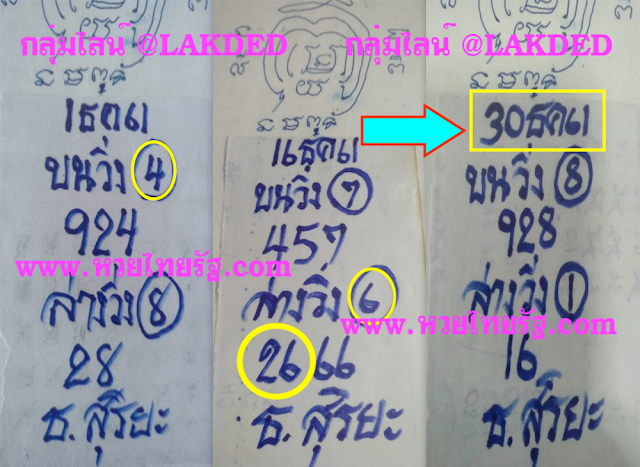 กลุ่มไลน์ @LAKDED
1ธค61
บนวิ่ง 4
924
www.หวยไทยรัฐ.com
ล่างวิ่ง 8
28
ธ.สุริยะ
16ธค61
บนวิ่ง 7
457
ล่างวิ่ง 6
26 66
ธ.สุริยะ
กลุ่มไลน์ @LAKDED
30ธค61
บนวิ่ง 8
928
ล่างวิ่ง 1
www.หวยไทยรัฐ.com
16
ธ.สุริยะ